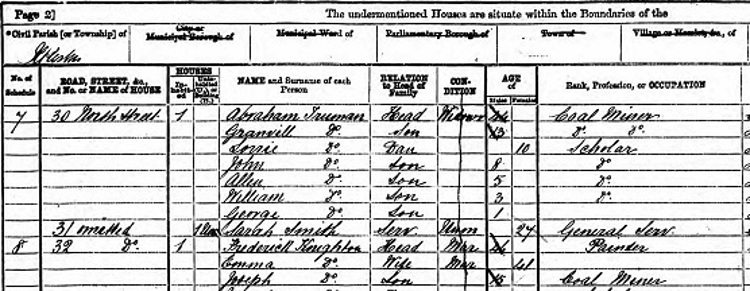 Page 2] The undermentioned Houses are situate within the Boundaries of the
*Civil Parish [or Township] of City or Municipal Borough of Municipal Ward of Parliamentary Borough of Town of Village or Hamlet, &c., of
No. of Schedule ROAD, STREET, &c., and No. or NAME of HOUSE HOUSES In-habit-ed Unin-habited (U.), or Building (B.) NAME and Surname of each Person RELATION to Head of Family CON-DITION AGE of Males Females Rank, Profession, or OCCUPATION
7 30 North Street 1 Abraham Truman Head Widower Coal Miner
Granvill Do Son 13 Do Do
Lorrie Do Dau 10 Scholar
John Do Son 8 Do
Allen Do Son 5 Do
William Do Son 3 Do
George Do Son 1
31 omitted Sarah Smith Serv Unm 24 General Serv
8 32 Do 1 Frederick Houghton Head Mar Painter
Emma Do Wife Mar 41
Joseph Do Son 15 Coal Miner